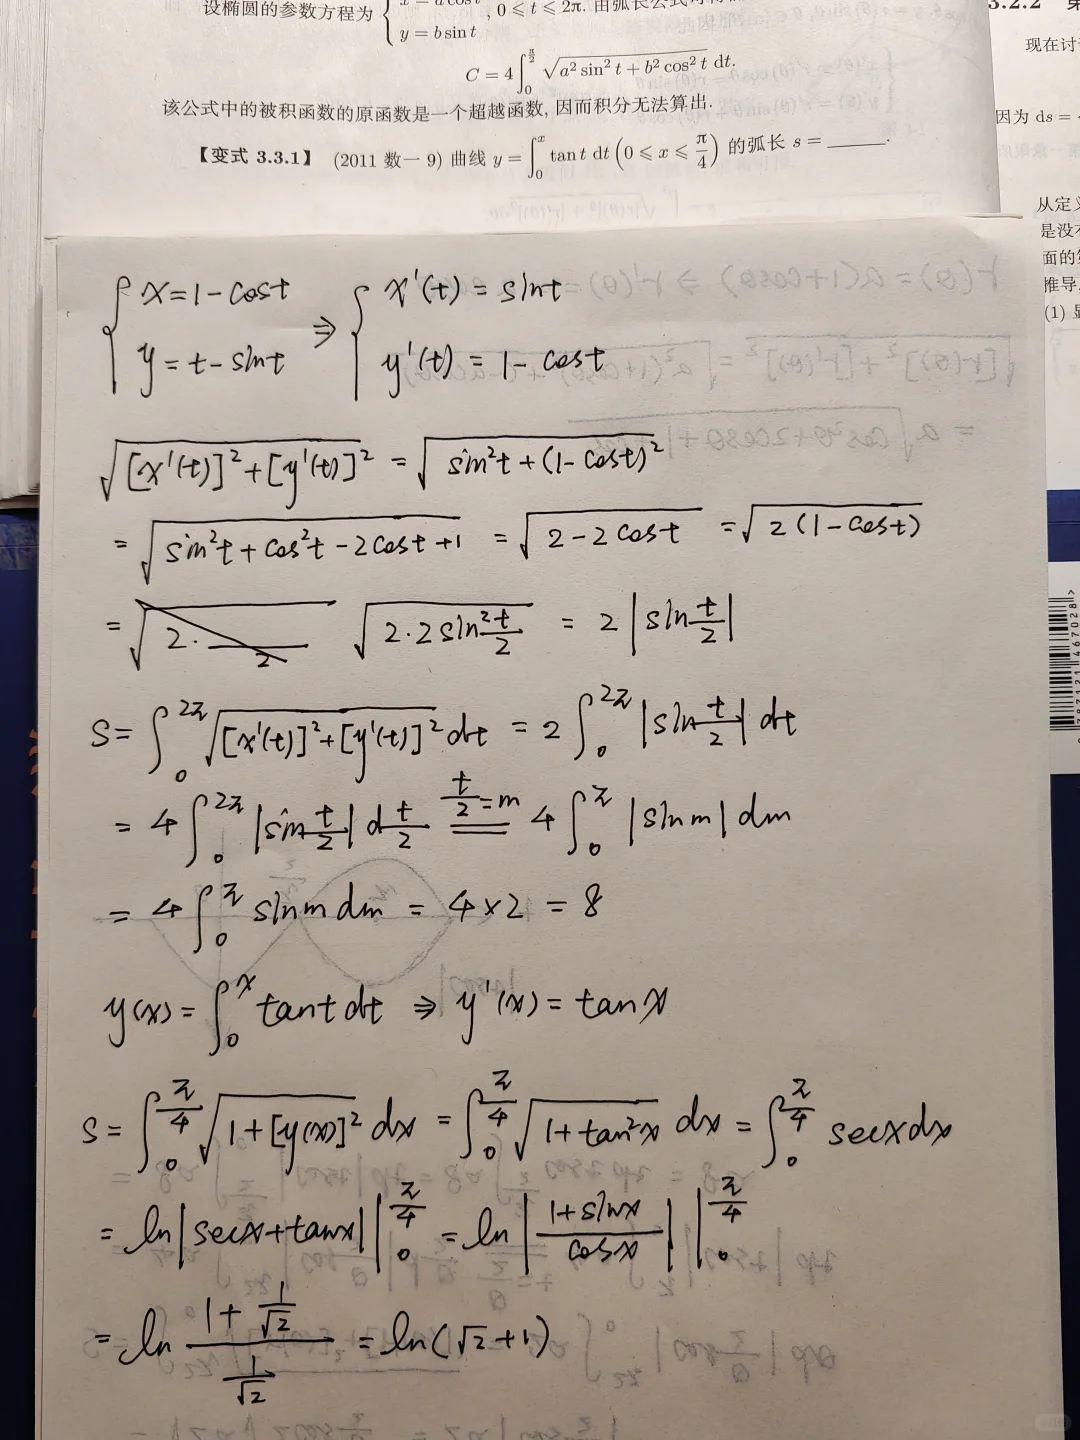 设椭圆的参数方程为 { x = a cos t, y = b sin t , 0 ⩽ t ⩽ 2π.
C = 4∫₀^{π/2} √(a² sin² t + b² cos² t) dt.
该公式中的被积函数的原函数是一个超越函数, 因而积分无法算出.
【变式 3.3.1】 (2011 数一 9) 曲线 y = ∫₀^x tan t dt (0 ⩽ x ⩽ π/4) 的弧长 s = ______.
3.2.2
现在讨
因为 ds =
从定义
是没有
面的
推导.
(1)
{ x = 1 - cost ⇒ { x'(t) = sint
y = t - sint y'(t) = 1 - cost
√([x'(t)]² + [y'(t)]²) = √(sin²t + (1 - cost)²)
= √(sin²t + cos²t - 2cost + 1) = √(2 - 2cost) = √(2(1 - cost))
= √(2·2sin²(t/2)) = 2|sin(t/2)|
S = ∫₀^{2π} √([x'(t)]² + [y'(t)]²) dt = 2∫₀^{2π} |sin(t/2)| dt
= 4∫₀^{2π} |sin(t/2)| d(t/2) =(t/2 = m)= 4∫₀^π |sin m| dm
= 4∫₀^π sin m dm = 4×2 = 8
y(x) = ∫₀^x tant dt ⇒ y'(x) = tanx
S = ∫₀^{π/4} √(1 + [y'(x)]²) dx = ∫₀^{π/4} √(1 + tan²x) dx = ∫₀^{π/4} secx dx
= ln|secx + tanx| |₀^{π/4} = ln|(1 + sinx)/cosx| |₀^{π/4}
= ln (1 + 1/√2)/(1/√2) = ln(√2 + 1)